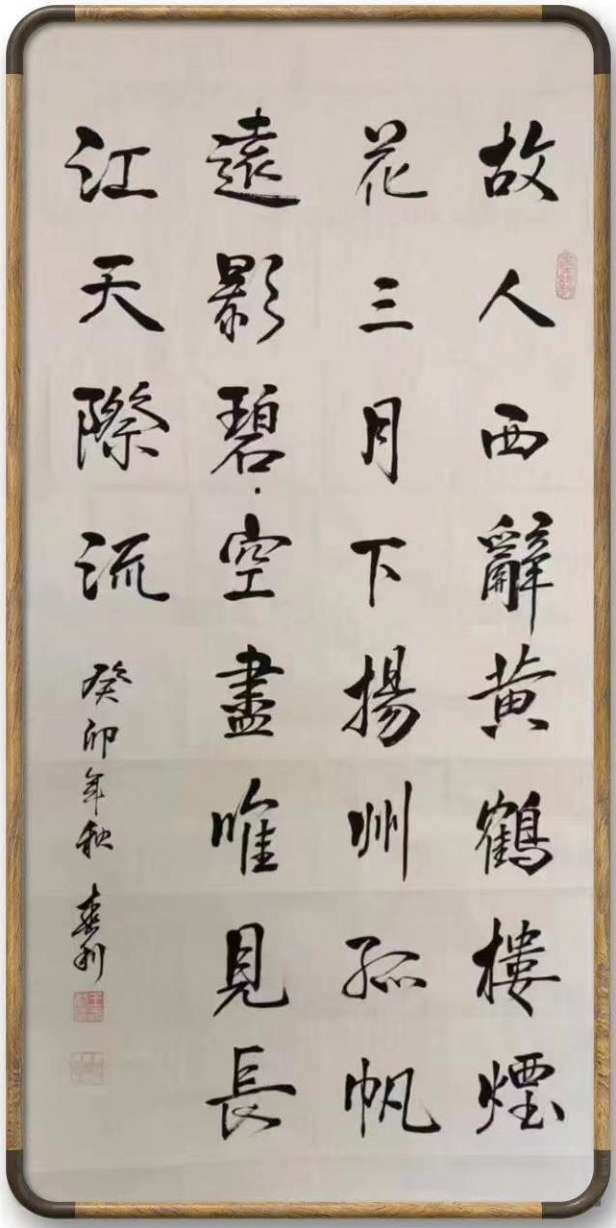 故人西辭黄鶴樓煙
花三月下揚州孤帆
遠影碧空盡唯見長
江天際流
癸卯年秋